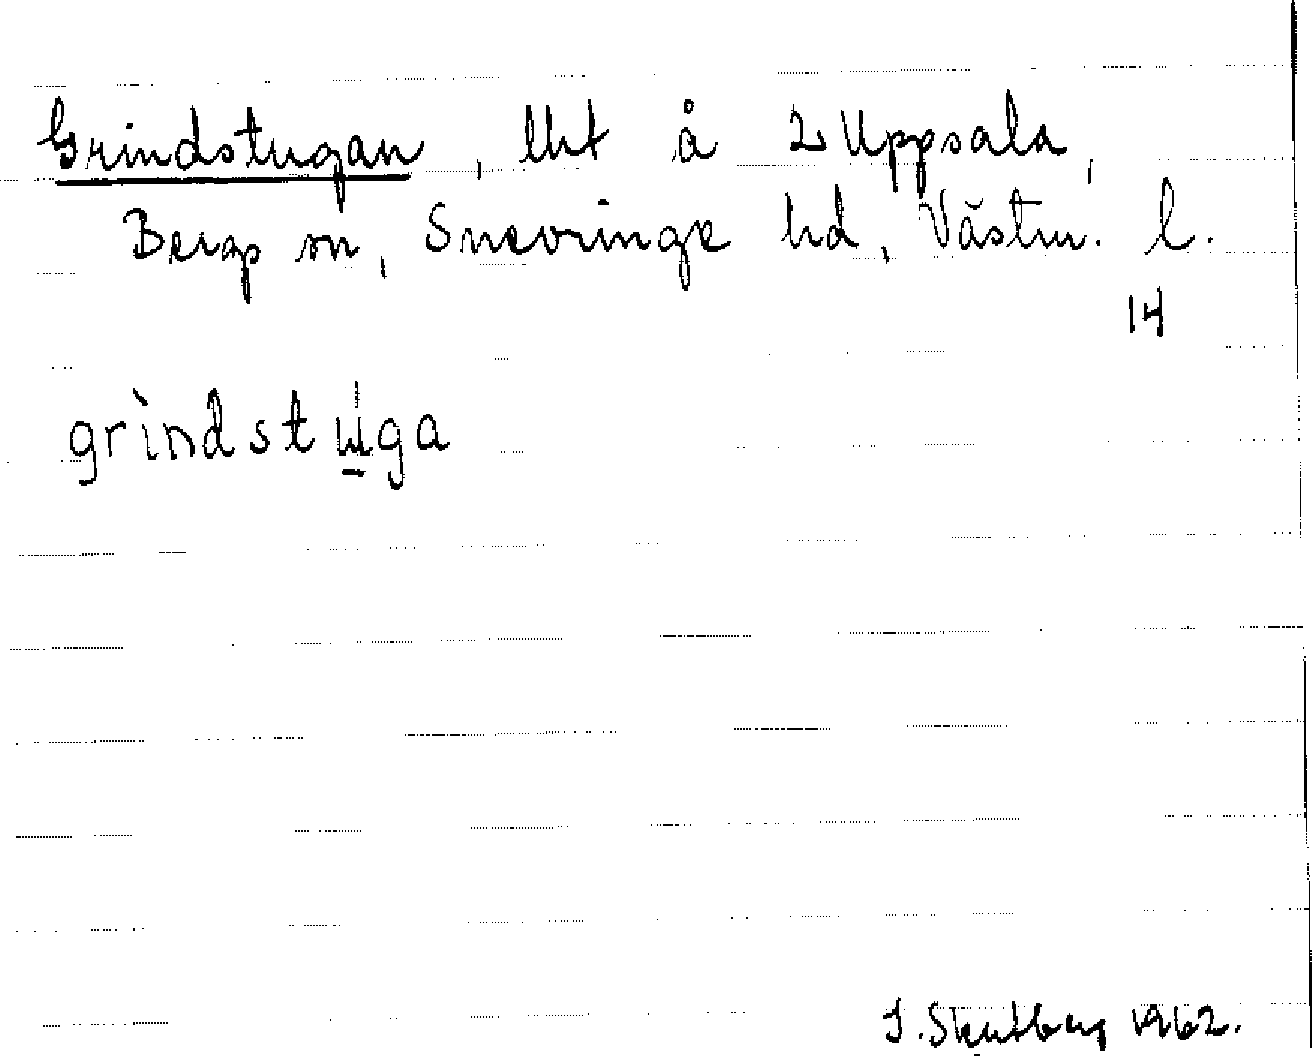 Grindstugan, lht å 2 Uppsala,
Bergs sn, Snevringe hd, Västm. l.
14
grìndstu̱ga
1962.